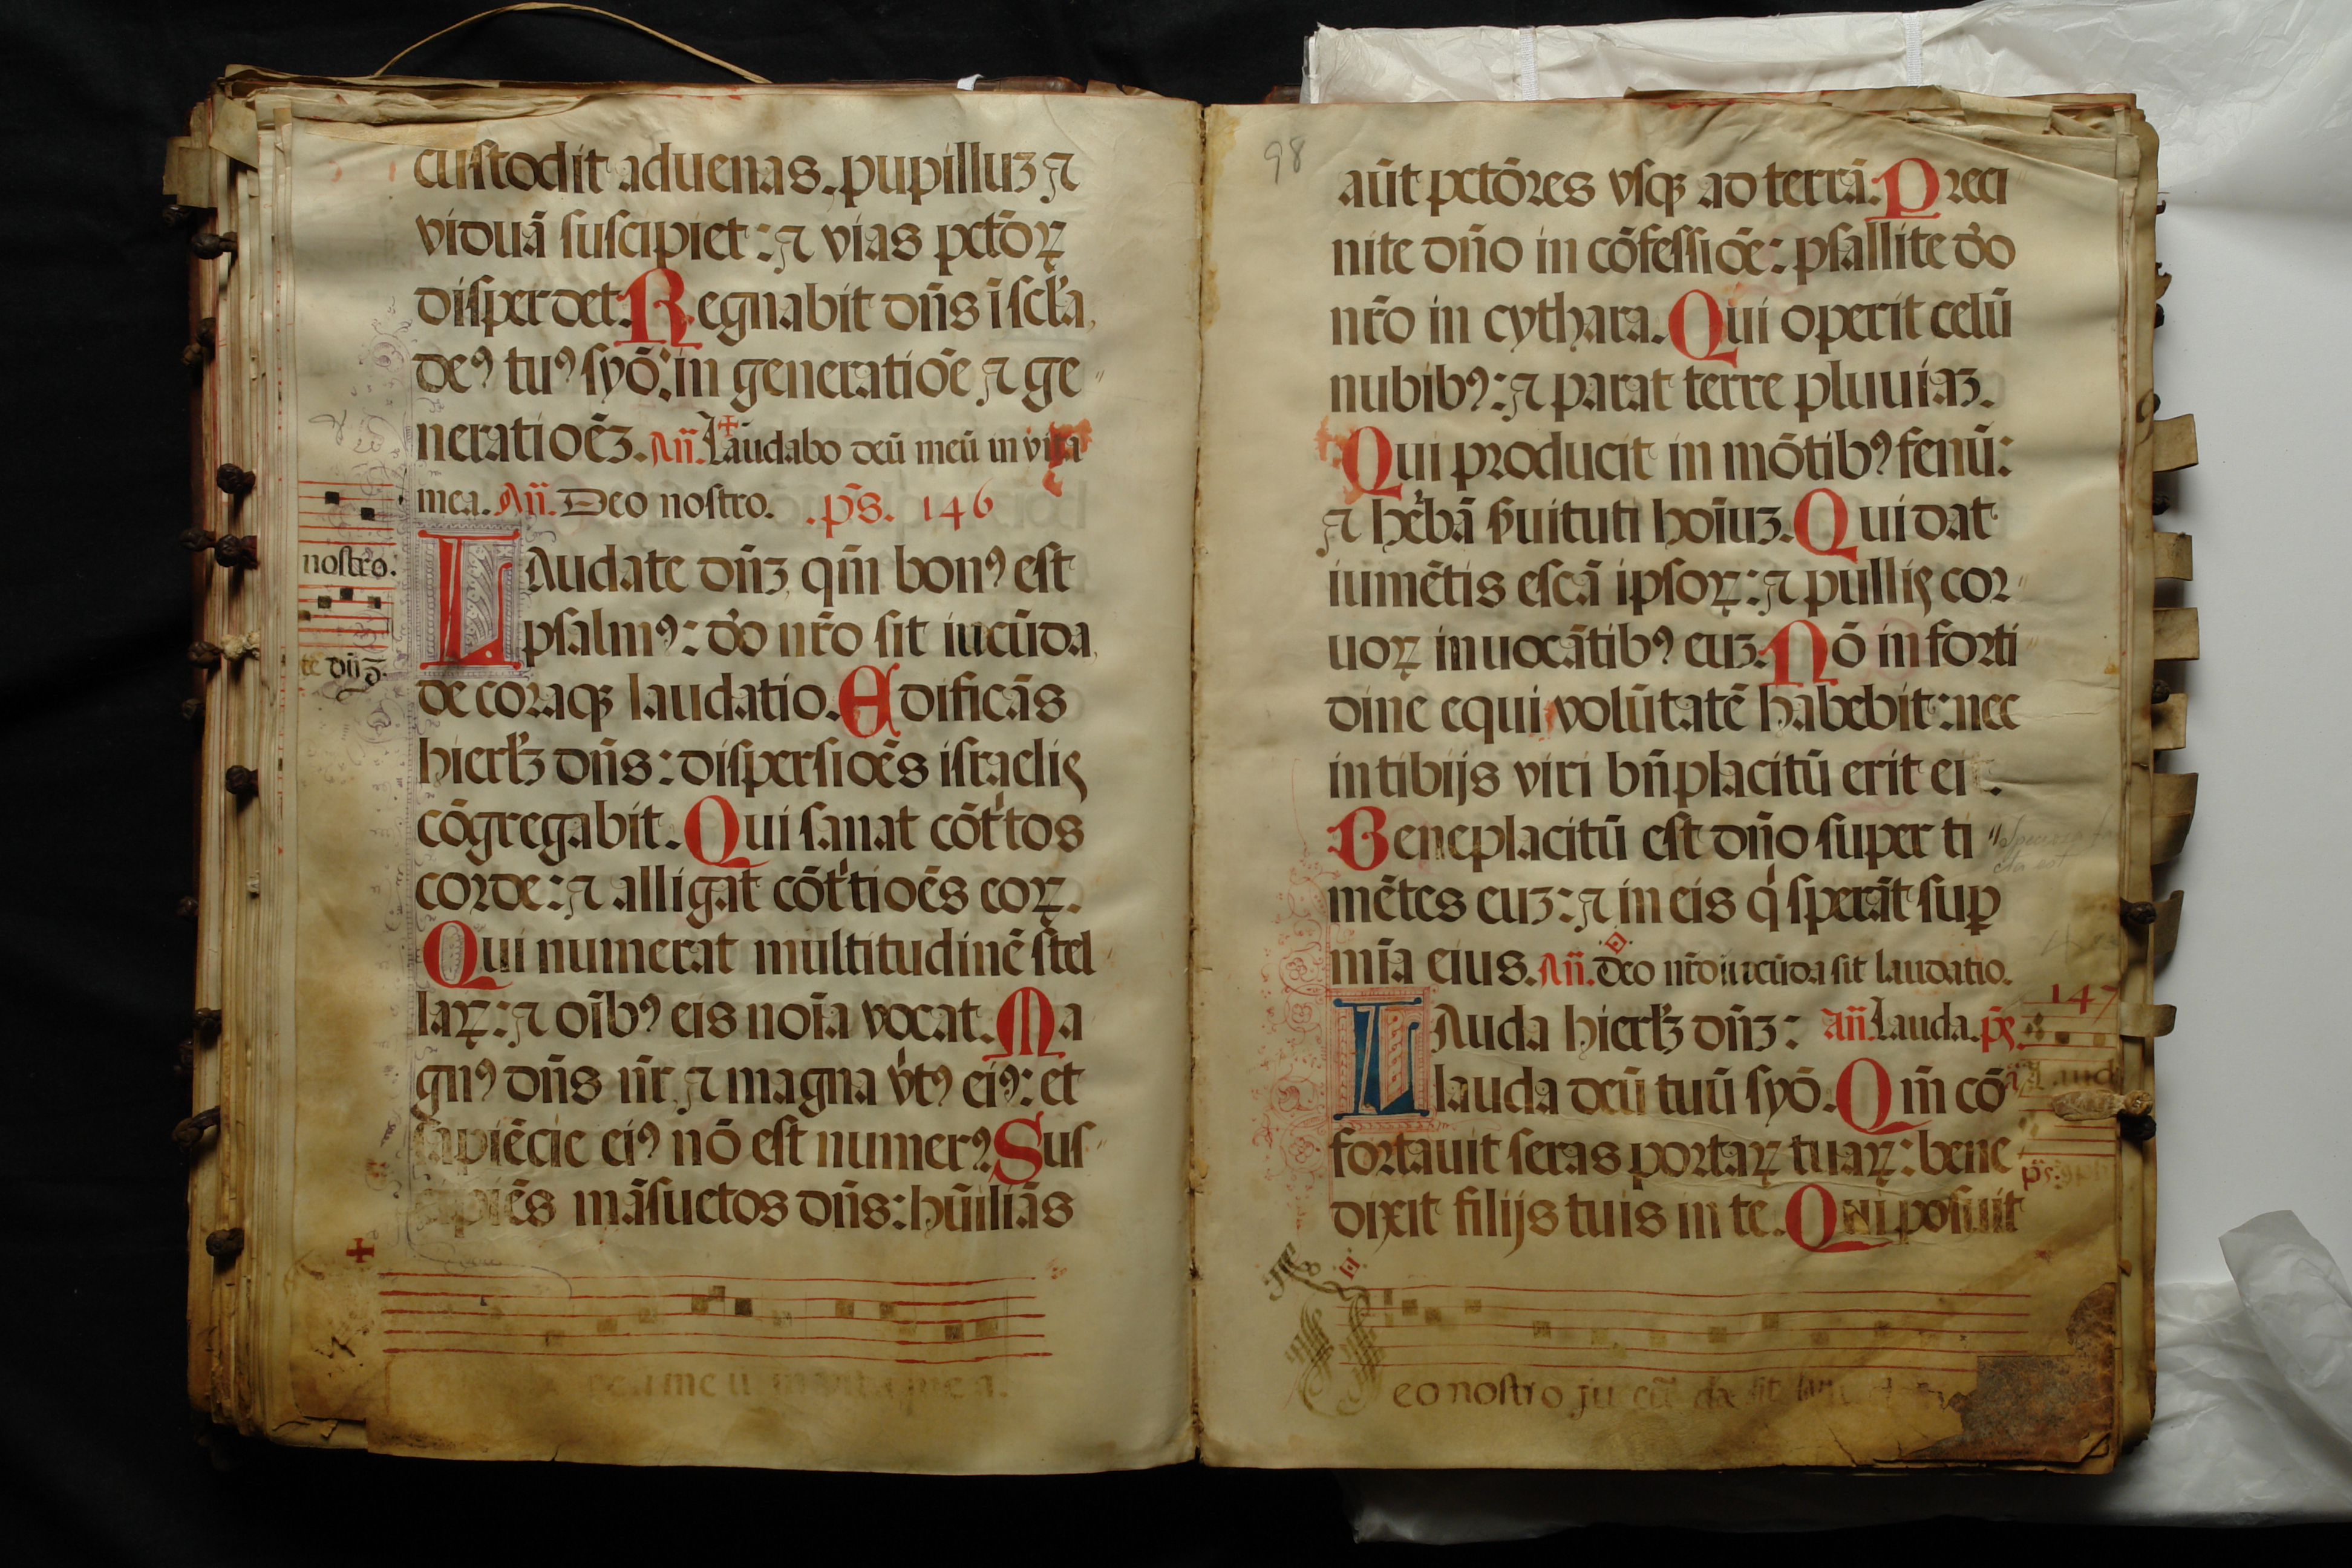 custodit aduenas. pupilluʒ ⁊
viduā suscipiet: ⁊ vias pctōꝝ
disperdet. Regnabit dn̄s ī scl̄a
deꝰ tuꝰ syō: in generatiōe ⁊ ge
neratiōeʒ. An̄. Laudabo deū meū in vita
mea. An̄. Deo nostro. .ps̄. 146
nostro:
LAudate dn̄ʒ qm̄ bonꝰ est
psalmꝰ: do̓ nr̄o sit iucūda
te dn̄
decoraqꝫ laudatio. Edificās
hierl̄ʒ dn̄s: dispersiōes israelis
cōgregabit. Qui sanat cōt'tos
corde: ⁊ alligat cōt'tiōes eoꝝ.
Qui numerat multitudinē stel
laꝝ: ⁊ oīb ꝰ eis noīa vocat. Ma
gnꝰ dn̄s nr̄ ⁊ magna v̓tꝰ eiꝰ: et
sapiēcie eiꝰ nō est numerꝰ. Sus
cipiēs māsuetos dn̄s: hūiliās
deu meu in vita mea.
98
aūt pctōres vsqꝫ ad terrā. Preci
nite dn̄o in cōfessiōe: psallite do̓
nr̄o in cythara. Qui operit celū
nubibꝰ: ⁊ parat terre pluuiaʒ.
Qui producit in mōtibꝰ fenū:
⁊ he̓bā ẜuituti hoīuʒ. Qui dat
iumētis escā ipsoꝝ: ⁊ pullis cor
uoꝝ inuocātibꝰ euʒ. Nō in forti
dine equi volūtatē habebit: nec
in tibijs viri bn̄placitū erit ei.
Beneplacitū est dn̄o super ti
mētes euʒ: ⁊ in eis q' sperāt suꝑ
mīa eius. An̄. deo nr̄o iucūda sit laudatio.
147
LAuda hierl̄ʒ dn̄ʒ: an̄. Lauda. ps̄.
lauda deū tuū syō. Qm̄ cō
fortauit seras portaꝝ tuaꝝ: bene
dixit filijs tuis in te. Qui posuit
eo nostro ju cū da sit